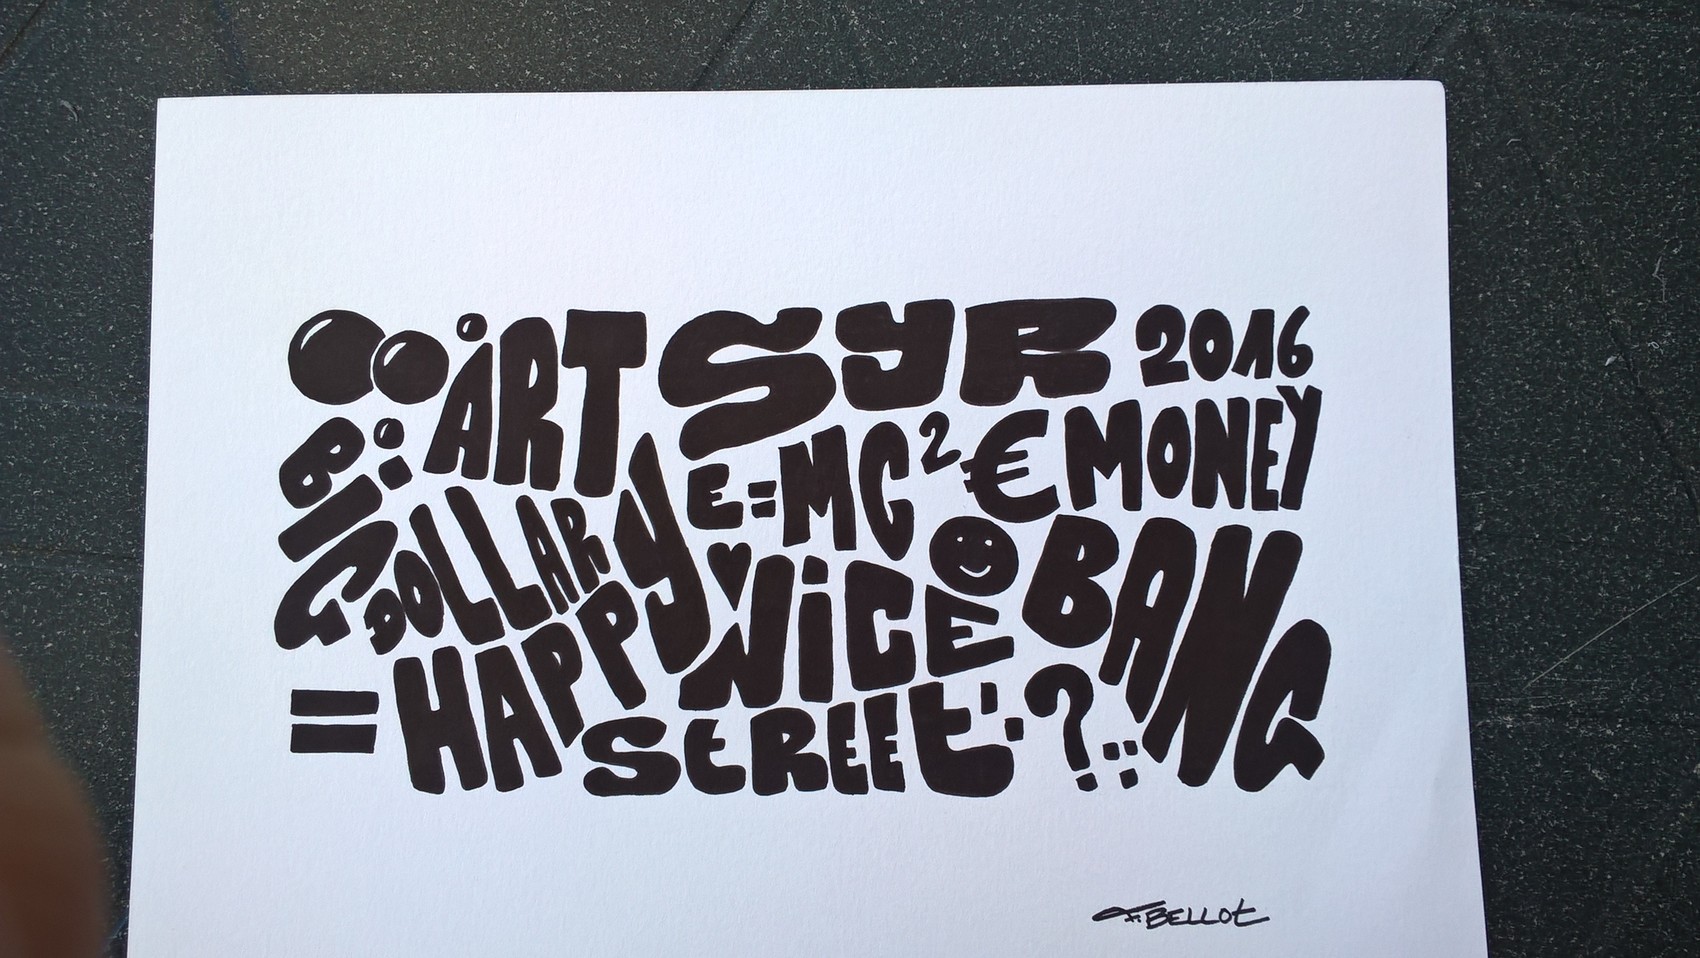 ART SYR 2016
BIG DOLLAR E=MC² € MONEY
= HAPPY NICE BANG
STREET ?
F. BELLOT